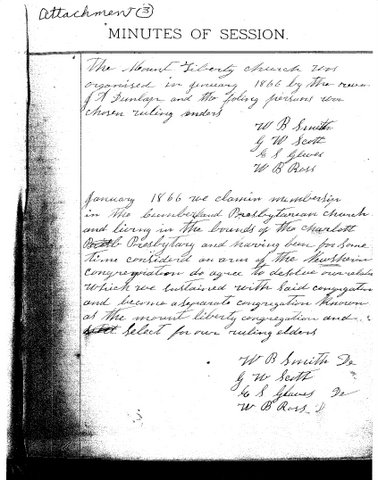 Attachment (3)
MINUTES OF SESSION.
The Mount Liberty church was
organised in january 1866 by the reven
J A Dunlap and the foling persons was
chosen ruling enders
W B Smith
G W Scott
S Glaves
W B Ross
January 1866 we claimin membersip
in the Cumberland Presbytarean church
and living in the bounds of the charlott
Presbytary and having been for some
time considerd an arm of the
congregation do agree to desolve our relation
which we sustained with said congregation
and become a separate congregation known
as the mount liberty congregation and
select for our ruling elders
W B Smith De
G W Scott
S Glaves De
W B Ross